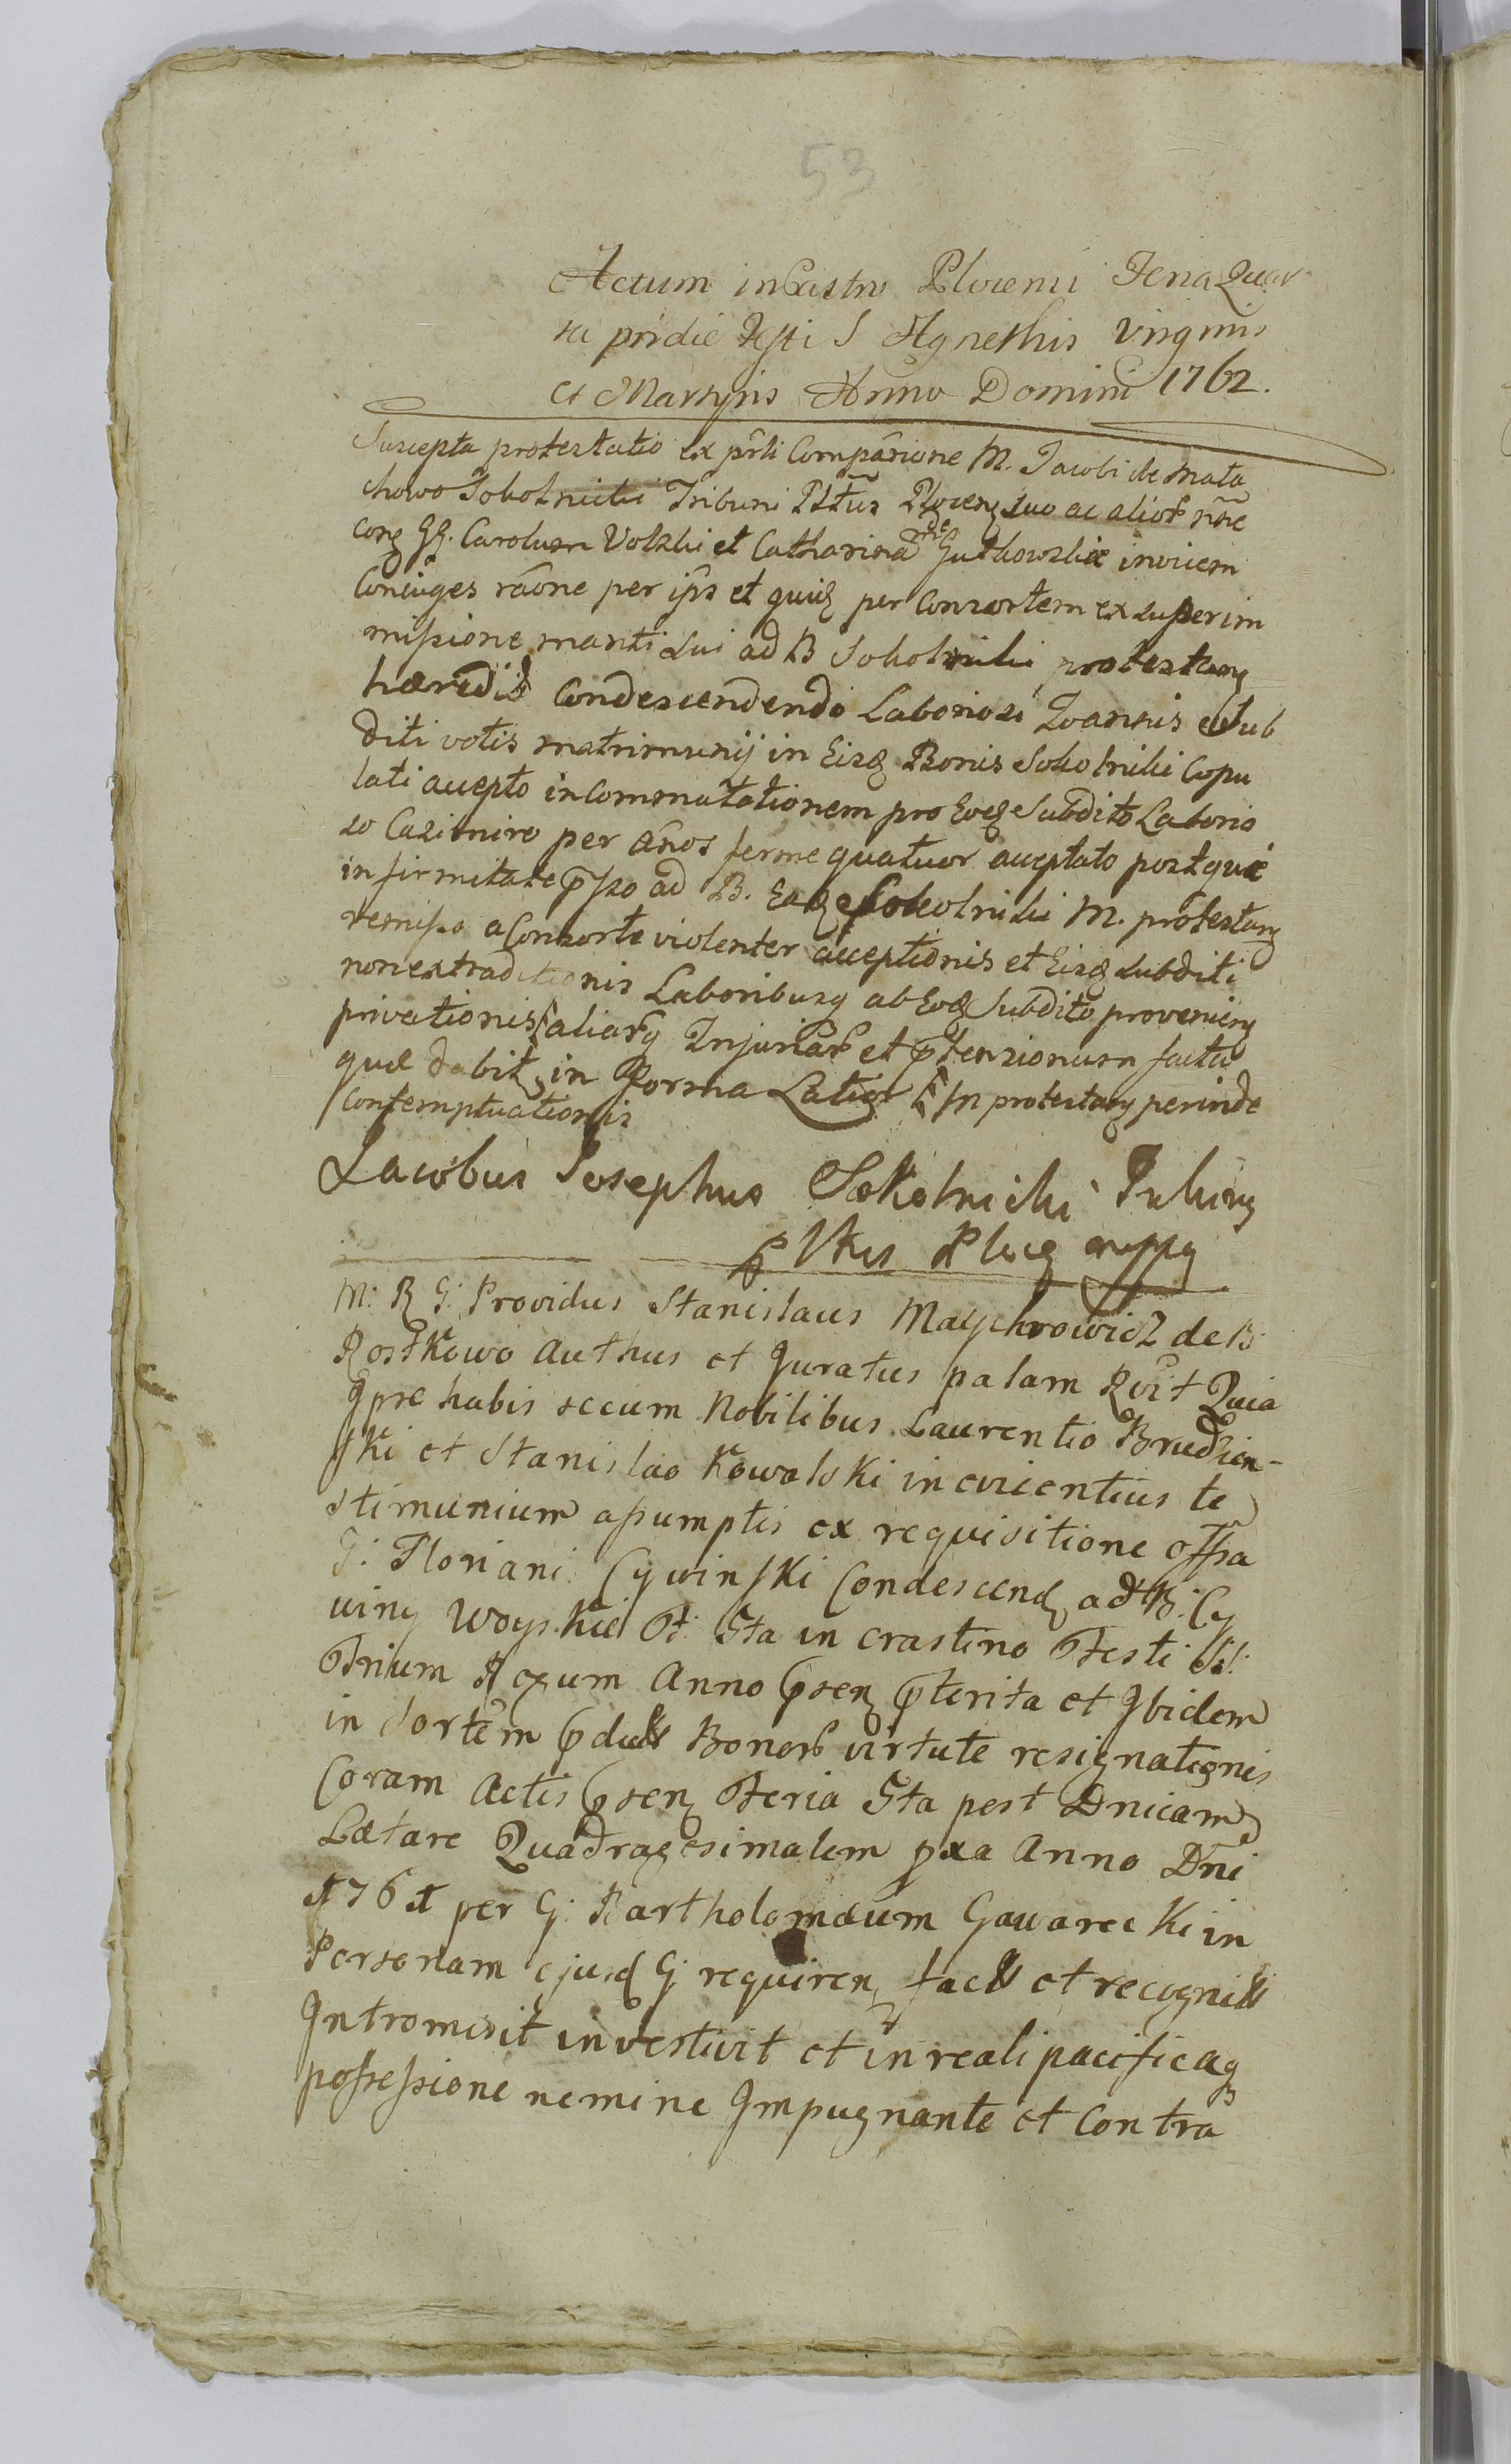 53
Actum in Castro Plocensi Feria Quar
ta pridie Festi S Agnethis Virginis
et Martyris Anno Domini 1762.
Suscepta protestatio ex prñti Compãrione M. Jacobi de Mała
chowo Sokolnicki Tribuni Pltũs Plocenz suo ac alior nñe
conz GG. Carolum Volski et Catharina de Gutkowskie invicem
Coniuges rãone per ips et quidz per Consortem ex superim
missione mariti sui ad B Sokolniki protestanz
hæredit Condescendendo Laboriosi Joannis Sub
diti votis matrimunij in Eisd Bonis Sokolniki Copu
lati accepto in Commutationem pro Eod Subdito Laborio
so Casimiro per Años ferme quatuor acceptato postque
infirmitate psso ad B. Ead Sokolniki M. protestanz
remisso a Consorte violenter acceptionis et Eisd subditi
non extraditionis Laboribusq ab Eod Subdito provenienz
privationis aliarq Injuriar et ptensionum facta
quæ dabit in Forma Latior M protestanz perinde
Contemptuationis
Iacobus Josephus Sokolnicki Tribunz
Pltus Plocz mppq
M: R G: Providus Stanislaus Maychrowicz de B:
Rostkowo Authus et Juratus palam Rvit Quia
Ipse habis secum Nobilibus Laurentio Brudzin-
ski et Stanislao Kowalski in evicentius te
stimunium assumptis ex requisitione offsa
G: Floriani Cywinski Condescend ad B: Cy
winy Woyskie F: 5ta in crastino Festi SS:
Trium Regum Anno psenz pterita et Ibidem
in Sortem pdict Bonor virtute resignationis
Coram Actis psenz Feria 5ta post Dnicam
Lætare Quadragesimalem pxa Anno Dñi
1761 per G: Bartholomæum Gawarecki in
Personam ejusd G: requirenz fact et recognit
Intromisit investivit et in reali pacificaq
possessione nemine Impugnante et Contra